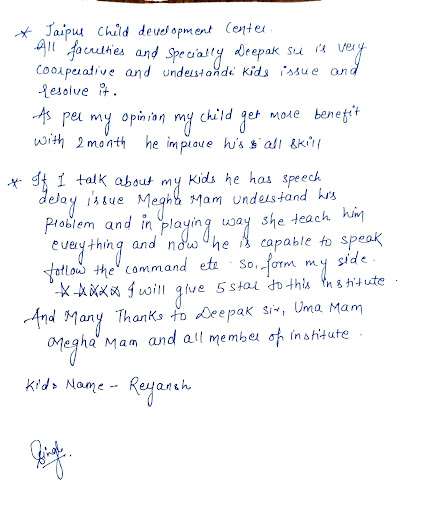 * Jaipur Child development Center.
All faculties and Specially Deepak sir is very
cooperative and understande kids issue and
Resolve it.
As per my opinion my child get more benefit
with 2 month he improve his all skill
* If I talk about my kids he has speech
delay issue Megha Mam understand his
problem and in playing way she teach him
everything and now he is capable to speak
follow the command etc. So, form my side.
I will give 5 star to this institute.
And Many Thanks to Deepak Sir, Uma Mam
Megha Mam and all member of institute.
Kids Name - Reyansh